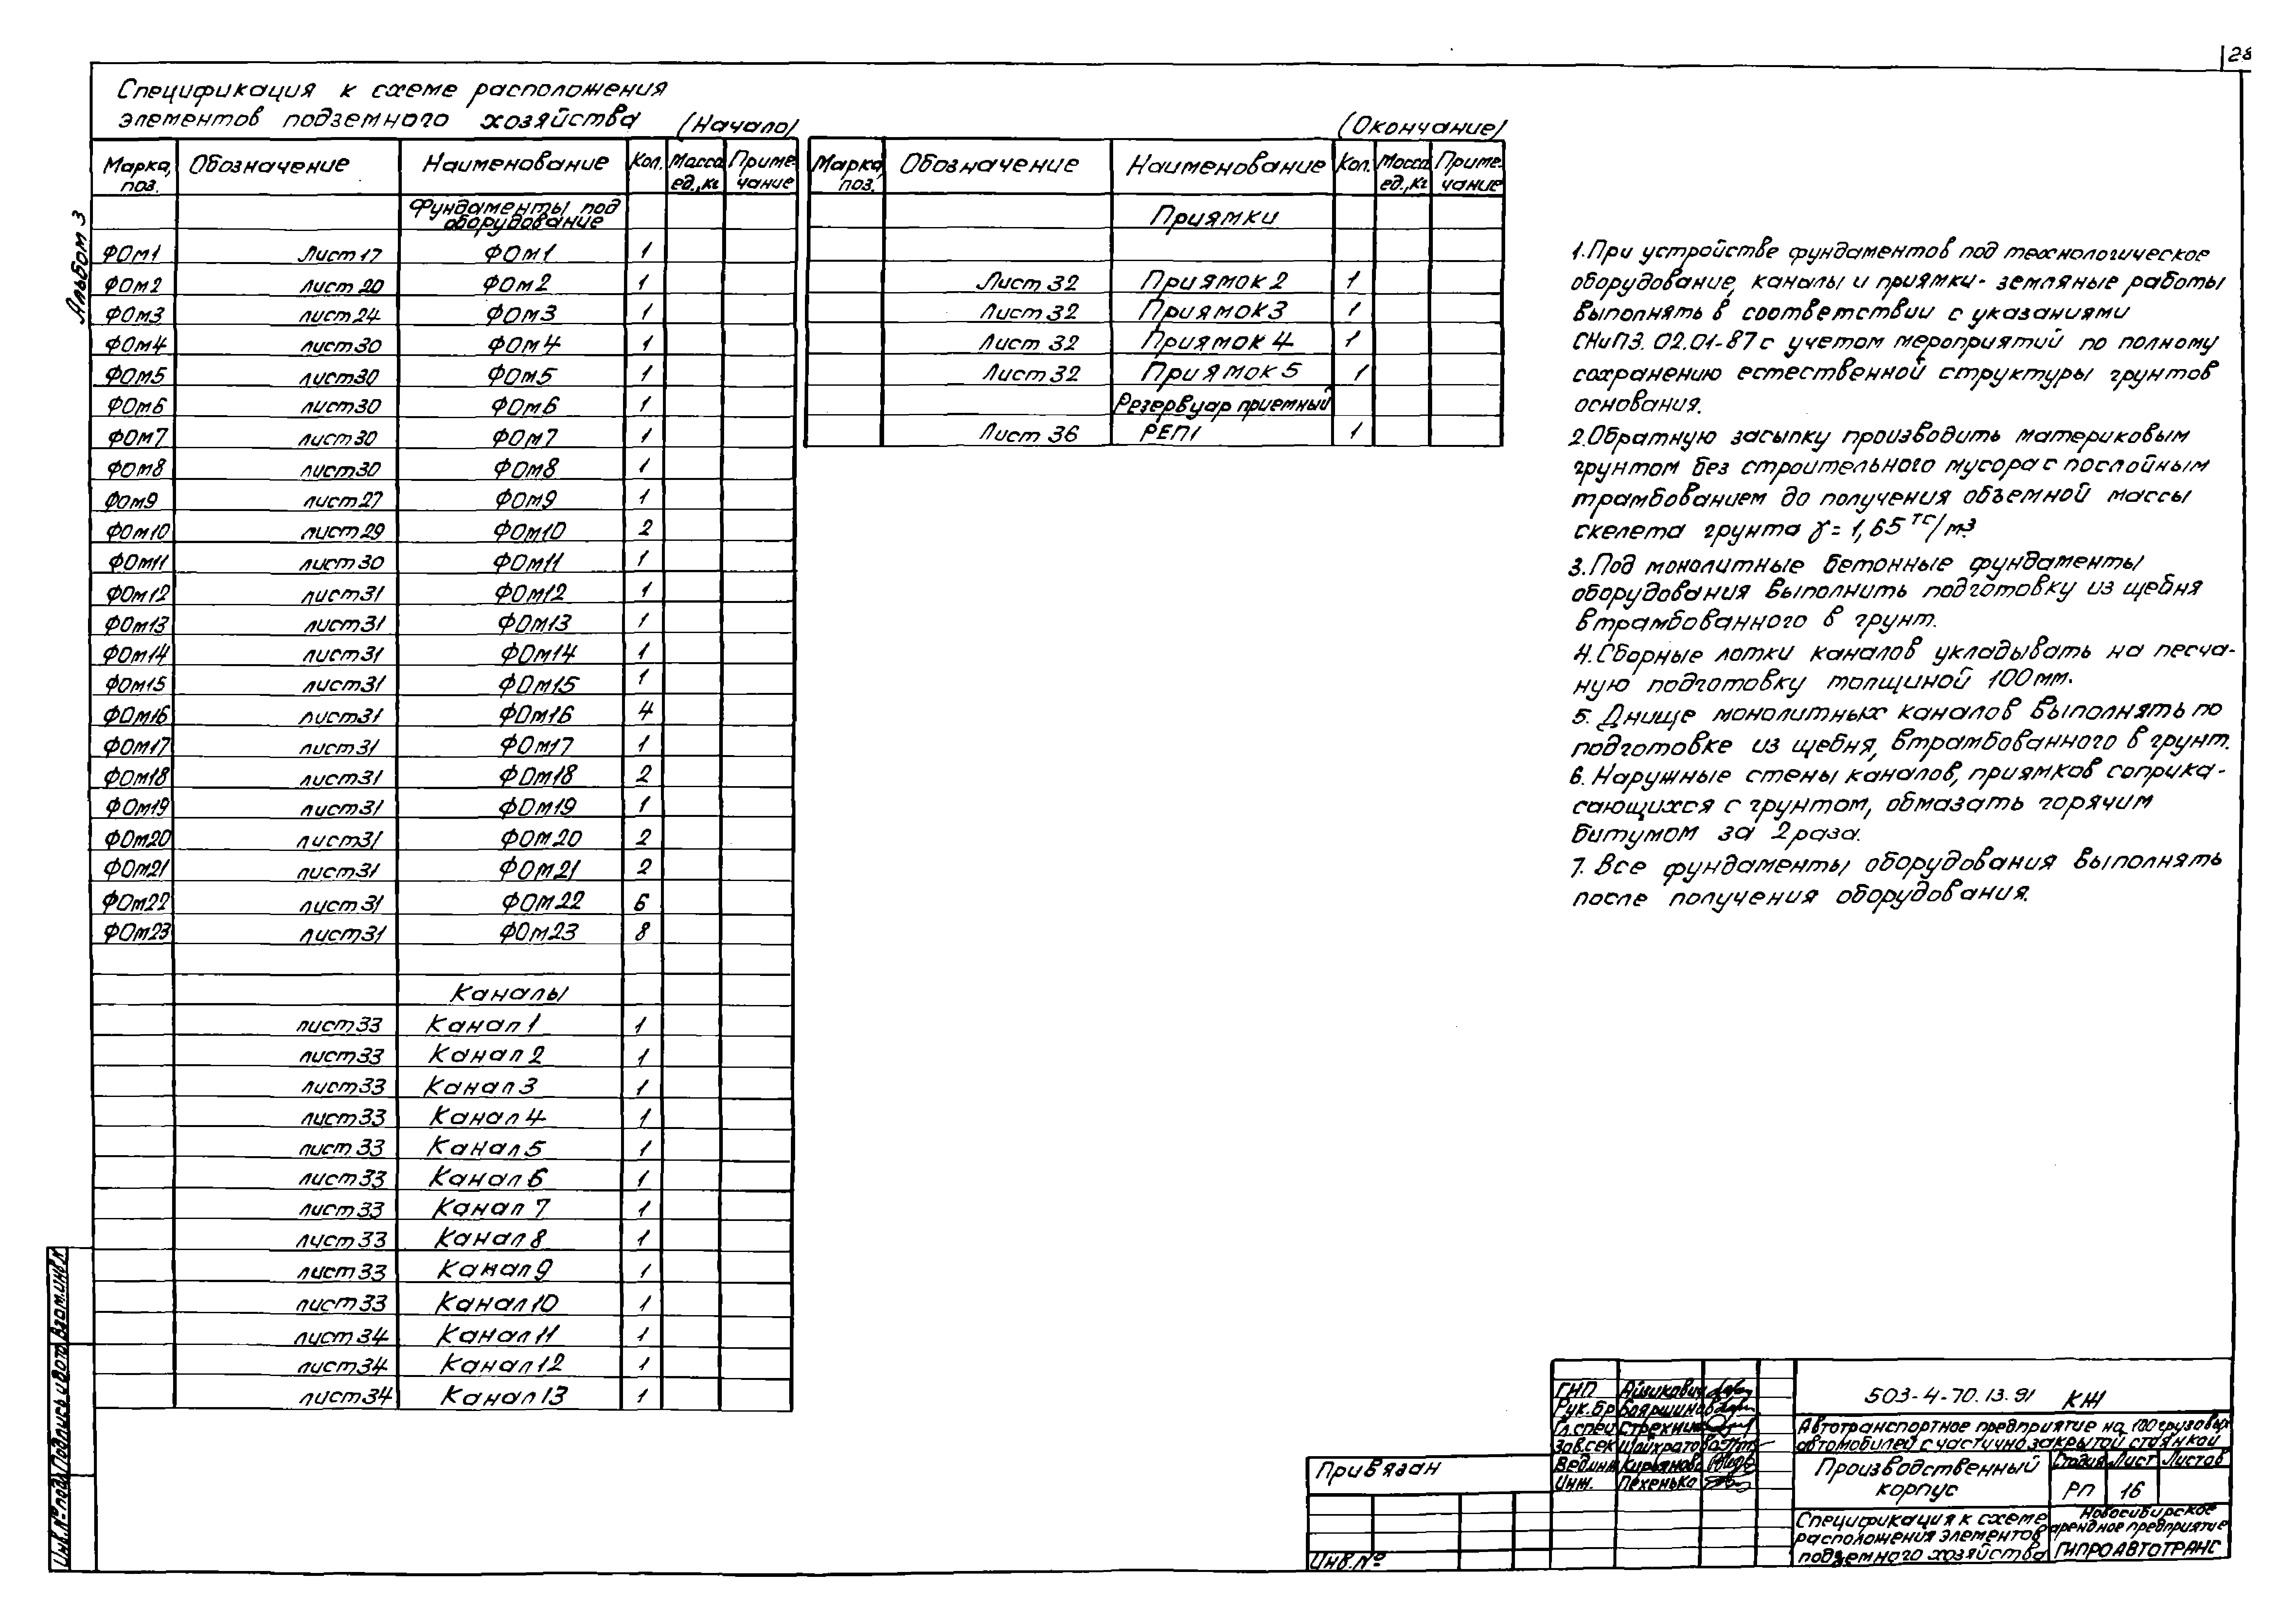 28
Спецификация к схеме расположения
элементов подземного хозяйства (Начало)
Марка, поз. Обозначение Наименование Кол. Масса ед., кг Приме-чание
Фундаменты под
оборудование
ФОм1 Лист 17 ФОм1 1
ФОм2 лист 20 ФОм2 1
ФОм3 лист 24 ФОм3 1
ФОм4 лист 30 ФОм4 1
ФОм5 лист 30 ФОм5 1
ФОм6 лист 30 ФОм6 1
ФОм7 лист 30 ФОм7 1
ФОм8 лист 30 ФОм8 1
ФОм9 лист 27 ФОм9 1
ФОм10 лист 29 ФОм10 2
ФОм11 лист 30 ФОм11 1
ФОм12 лист 31 ФОм12 1
ФОм13 лист 31 ФОм13 1
ФОм14 лист 31 ФОм14 1
ФОм15 лист 31 ФОм15 1
ФОм16 лист 31 ФОм16 4
ФОм17 лист 31 ФОм17 1
ФОм18 лист 31 ФОм18 2
ФОм19 лист 31 ФОм19 1
ФОм20 лист 31 ФОм20 2
ФОм21 лист 31 ФОм21 2
ФОм22 лист 31 ФОм22 6
ФОм23 лист 31 ФОм23 8
Каналы
лист 33 Канал 1 1
лист 33 Канал 2 1
лист 33 Канал 3 1
лист 33 Канал 4 1
лист 33 Канал 5 1
лист 33 Канал 6 1
лист 33 Канал 7 1
лист 33 Канал 8 1
лист 33 Канал 9 1
лист 33 Канал 10 1
лист 34 Канал 11 1
лист 34 Канал 12 1
лист 34 Канал 13 1
(Окончание)
Марка, поз. Обозначение Наименование Кол. Масса ед., кг Приме-чание
Приямки
Лист 32 Приямок 2 1
Лист 32 Приямок 3 1
Лист 32 Приямок 4 1
Лист 32 Приямок 5 1
Резервуар приемный
Лист 36 РЕП1 1
1. При устройстве фундаментов под технологическое
оборудование, каналы и приямки - земляные работы
выполнять в соответствии с указаниями
СНиП 3.02.01-87 с учетом мероприятий по полному
сохранению естественной структуры грунтов
основания.
2. Обратную засыпку производить материковым
грунтом без строительного мусора с послойным
трамбованием до получения объемной массы
скелета грунта γ = 1,65 тс/м3
3. Под монолитные бетонные фундаменты
оборудования выполнить подготовку из щебня
втрамбованного в грунт.
4. Сборные лотки каналов укладывать на песча-
ную подготовку толщиной 100 мм.
5. Днище монолитных каналов выполнять по
подготовке из щебня, втрамбованного в грунт.
6. Наружные стены каналов, приямков соприка-
сающихся с грунтом, обмазать горячим
битумом за 2 раза.
7. Все фундаменты оборудования выполнять
после получения оборудования.
Альбом 3
Инв. № подл. Подпись и дата Взам. инв. №
Привязан
Инв. №
ГИП Айзикович
Рук. бр Бояршинов
Гл. спец Стрехнин
Зав. сек Шайхратова
Вед. инж Кирьянова
Инж. Пехенько
503-4-70.13.91 КЖ
Автотранспортное предприятие на 100 грузовых
автомобилей с частично закрытой стоянкой
Производственный
корпус
Стадия Лист Листов
РП 16
Спецификация к схеме
расположения элементов
подземного хозяйства
Новосибирское
арендное предприятие
ГИПРОАВТОТРАНС